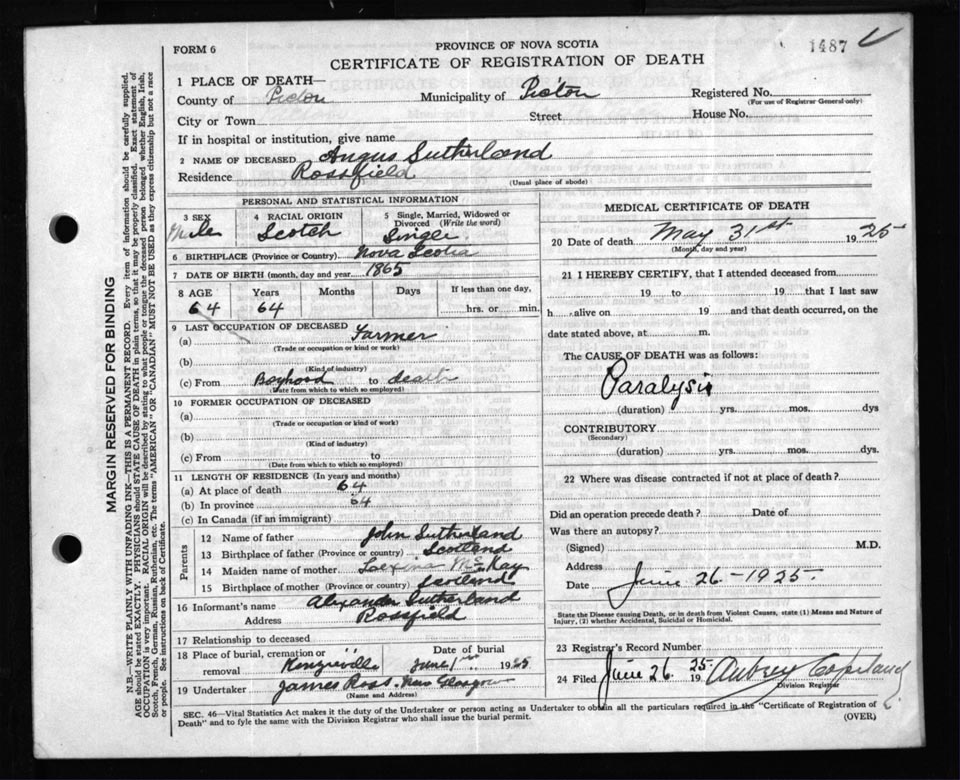 1487
FORM 6
PROVINCE OF NOVA SCOTIA
CERTIFICATE OF REGISTRATION OF DEATH
1 PLACE OF DEATH—
County of Pictou Municipality of Pictou Registered No.
(For use of Registrar General only)
City or Town Street House No.
If in hospital or institution, give name
2 NAME OF DECEASED Angus Sutherland
Residence Rossfield
(Usual place of abode)
PERSONAL AND STATISTICAL INFORMATION
3 SEX 4 RACIAL ORIGIN 5 Single, Married, Widowed or Divorced (Write the word)
Male Scotch Single
6 BIRTHPLACE (Province or Country) Nova Scotia
7 DATE OF BIRTH (month, day and year) 1865
8 AGE Years Months Days If less than one day,
64 64 hrs. or min.
9 LAST OCCUPATION OF DECEASED
(a) Farmer
(Trade or occupation or kind of work)
(b)
(Kind of industry)
(c) From Boyhood to death
(Date from which to which so employed)
10 FORMER OCCUPATION OF DECEASED
(a)
(Trade or occupation or kind of work)
(b)
(Kind of industry)
(c) From to
(Date from which to which so employed)
11 LENGTH OF RESIDENCE (In years and months)
(a) At place of death 64
(b) In province 64
(c) In Canada (if an immigrant)
Parents
12 Name of father John Sutherland
13 Birthplace of father (Province or country) Scotland
14 Maiden name of mother McKay
15 Birthplace of mother (Province or country) Scotland
16 Informant's name Alexander Sutherland
Address Rossfield
17 Relationship to deceased
18 Place of burial, cremation or removal Date of burial
Kenzieville June 1st 1925
19 Undertaker James Ross New Glasgow
(Name and Address)
MEDICAL CERTIFICATE OF DEATH
20 Date of death May 31st 1925
(Month, day and year)
21 I HEREBY CERTIFY, that I attended deceased from
19 to 19 that I last saw
h alive on 19 and that death occurred, on
date stated above, at m.
The CAUSE OF DEATH was as follows:
Paralysis
(duration) yrs. mos. dys
CONTRIBUTORY
(Secondary)
(duration) yrs. mos. dys.
22 Where was disease contracted if not at place of death?
Did an operation precede death? Date of
Was there an autopsy?
(Signed) M.D.
Address
Date June 26-1925.
State the Disease causing Death, or in death from Violent Causes, state (1) Means and Nature of
Injury, (2) whether Accidental, Suicidal or Homicidal.
23 Registrar's Record Number
24 Filed June 26 1925 Aubrey Copeland
Division Registrar
SEC. 46—Vital Statistics Act makes it the duty of the Undertaker or person acting as Undertaker to obtain all the particulars required in the "Certificate of Registration of
Death" and to fyle the same with the Division Registrar who shall issue the burial permit. (OVER)
MARGIN RESERVED FOR BINDING
N.B.—WRITE PLAINLY WITH UNFADING INK—THIS IS A PERMANENT RECORD. Every item of information should be carefully supplied.
AGE should be stated EXACTLY. PHYSICIANS should STATE CAUSE OF DEATH in plain terms, so that it may be properly classified. Exact statement of
OCCUPATION is very important. RACIAL ORIGIN will be described by stating to what people or tongue the deceased person belonged whether English, Irish,
Scotch, French, German, Russian, Ruthenian, etc. The terms "AMERICAN" OR "CANADIAN" MUST NOT BE USED as they express citizenship but not a race
or people. See instructions on back of Certificate.